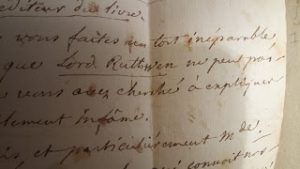 éditeur du livre.
vous faites un tort inéparable
que Lord Ruthwen ne peut pas
vous avez cherché à expliquer
lement infâme.
et particulièrement M. de
connoit